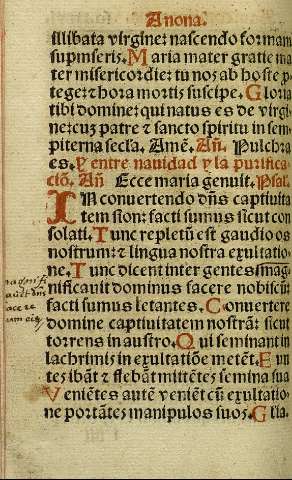 Anona.
illibata virgine: nascendo formam
sumpseris. Maria mater gratie ma
ter misericordie: tu nos ab hoste p̱
tege: & hora mortis suscipe. Gloria
tibi domine: qui natus es de virgi
ne: cuȝ patre & sancto spiritu in sem
piterna secl'a. Amē. Añ. Pulchra
es. y entre navidad y la purifica
ciō. Añ Ecce maria genuit. Psal.
IN convertendo dñs captivita
tem sion: facti sumus sicut con
solati. Tunc repletū est gaudio os
nostrum: & lingua nostra exultatio
ne. Tunc dicent inter gentes: mag
nificavit dominus facere nobiscū
facti sumus letantes. Convertere
domine captivitatem nostrā: sicut
torrens in austro. Qui seminant in
lachrimis in exultatiōe metēt. Eun
tes ibāt & flebāt mittētes semina sua
Veniētes autē veniēt cū exultatio-
ne portātes manipulos suos. Gl'ia.